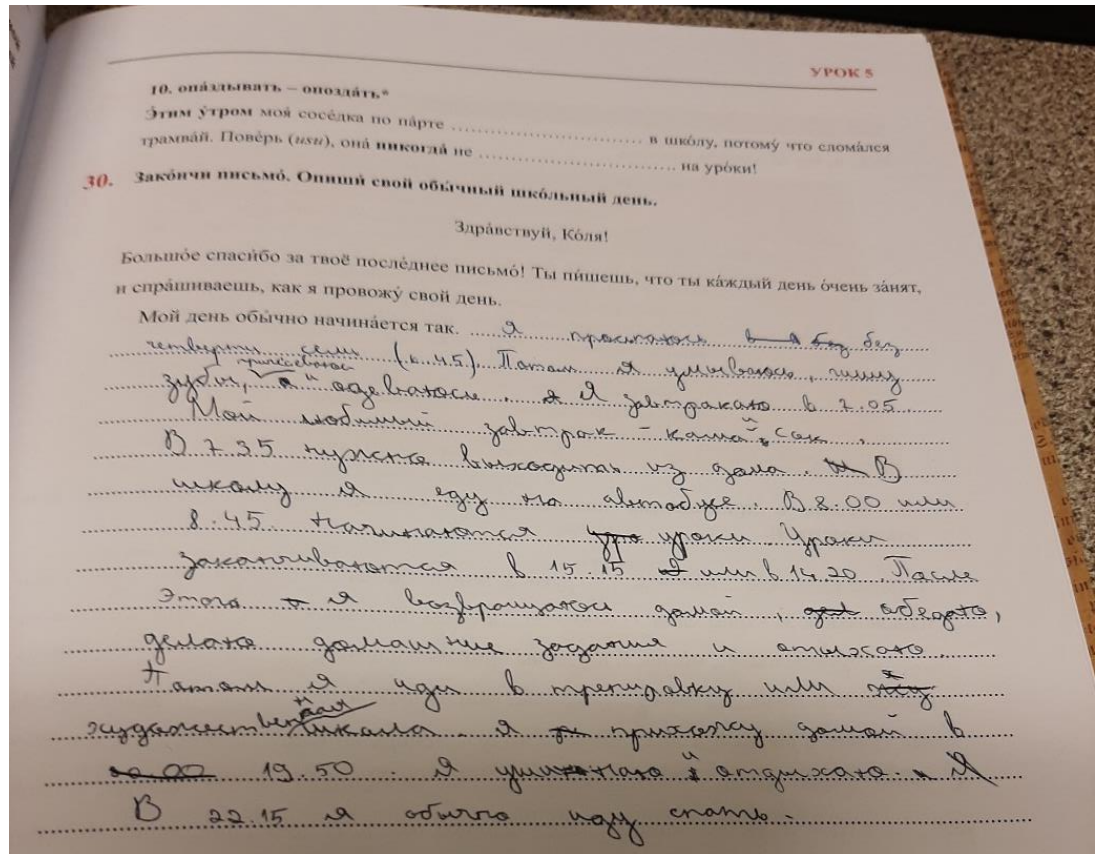 УРОК 5
10. опа́здывать – опозда́ть*
Э́тим у́тром моя́ сосе́дка по па́рте ........................................ в шко́лу, потому́ что слома́лся
трамва́й. Пове́рь (usu), она́ никогда́ не ........................................ на уро́ки!
30. Зако́нчи письмо́. Опиши́ свой обы́чный шко́льный день.
Здра́вствуй, Ко́ля!
Большо́е спаси́бо за твоё после́днее письмо́! Ты пи́шешь, что ты ка́ждый день о́чень за́нят,
и спра́шиваешь, как я провожу́ свой день.
Мой день обы́чно начина́ется так. Я просыпаюсь без
четверти семь (6.45). Потом я умываюсь, чищу
зубы, причёсываюсь и одеваюсь. Я завтракаю в 7.05
Мой любимый завтрак - каша и сок.
В 7.35 нужно выходить из дома. В
школу я еду на автобусе. В 8.00 или
8.45 начинаются уроки. Уроки
заканчиваются в 15.15 или в 14.20. После
этого я возвращаюсь домой, обедаю,
делаю домашние задания и отдыхаю.
Потом я иду в тренировку или
школа. я прихожу домой в
19.50. Я ужинаю и отдыхаю.
В 22.15 я обычно иду спать.